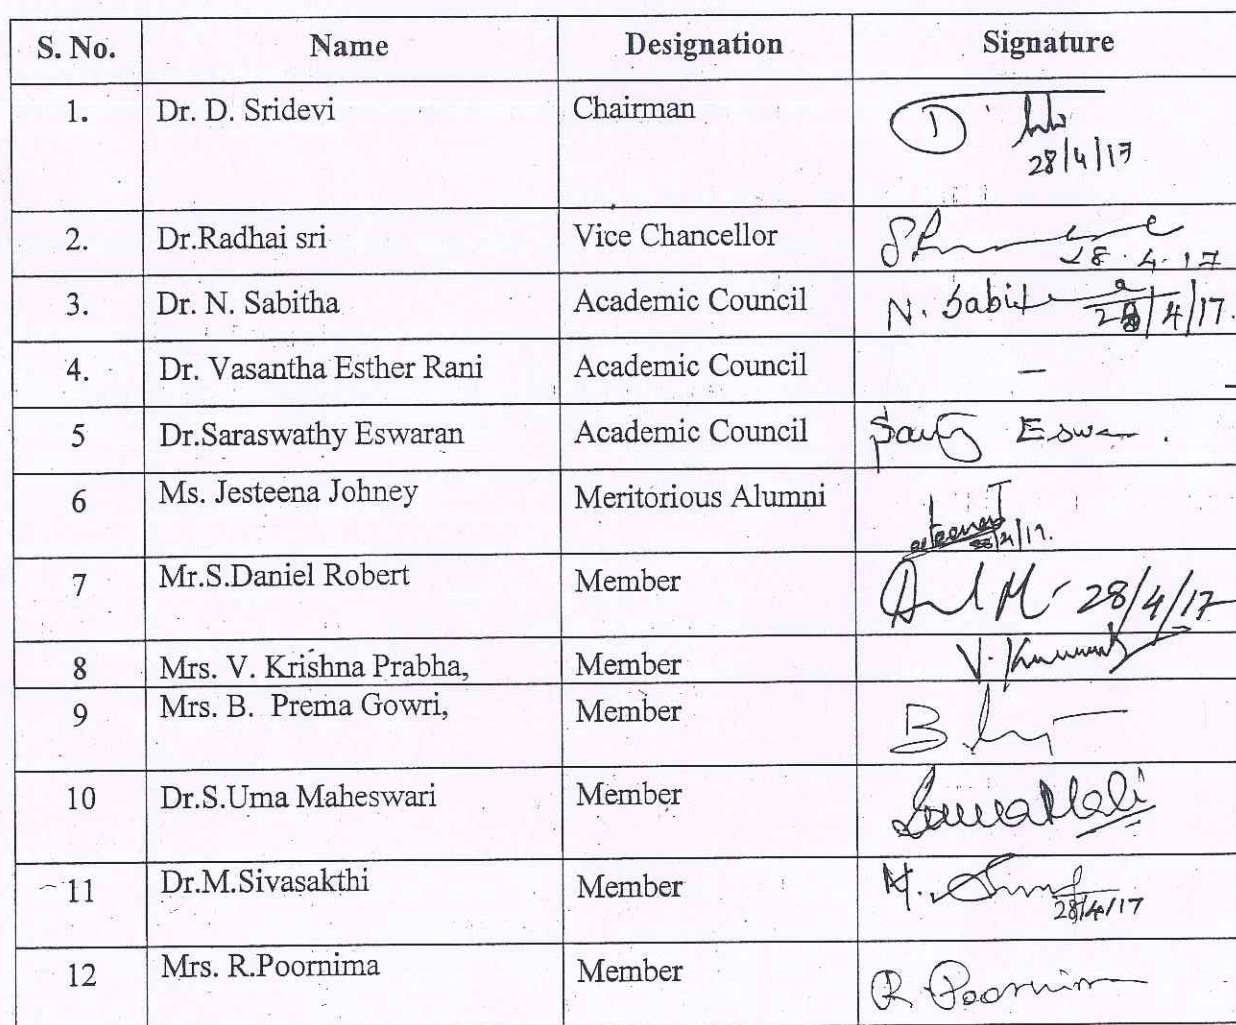 S. No. Name Designation Signature
1. Dr. D. Sridevi Chairman D
28/4/17
2. Dr.Radhai sri Vice Chancellor
28.4.17
3. Dr. N. Sabitha Academic Council N. Sabitha
28/4/17.
4. Dr. Vasantha Esther Rani Academic Council –
5 Dr.Saraswathy Eswaran Academic Council
6 Ms. Jesteena Johney Meritorious Alumni
28/4/17.
7 Mr.S.Daniel Robert Member 28/4/17
8 Mrs. V. Krishna Prabha, Member V.
9 Mrs. B. Prema Gowri, Member B
10 Dr.S.Uma Maheswari Member
11 Dr.M.Sivasakthi Member M.
28/4/17
12 Mrs. R.Poornima Member R. Poornima